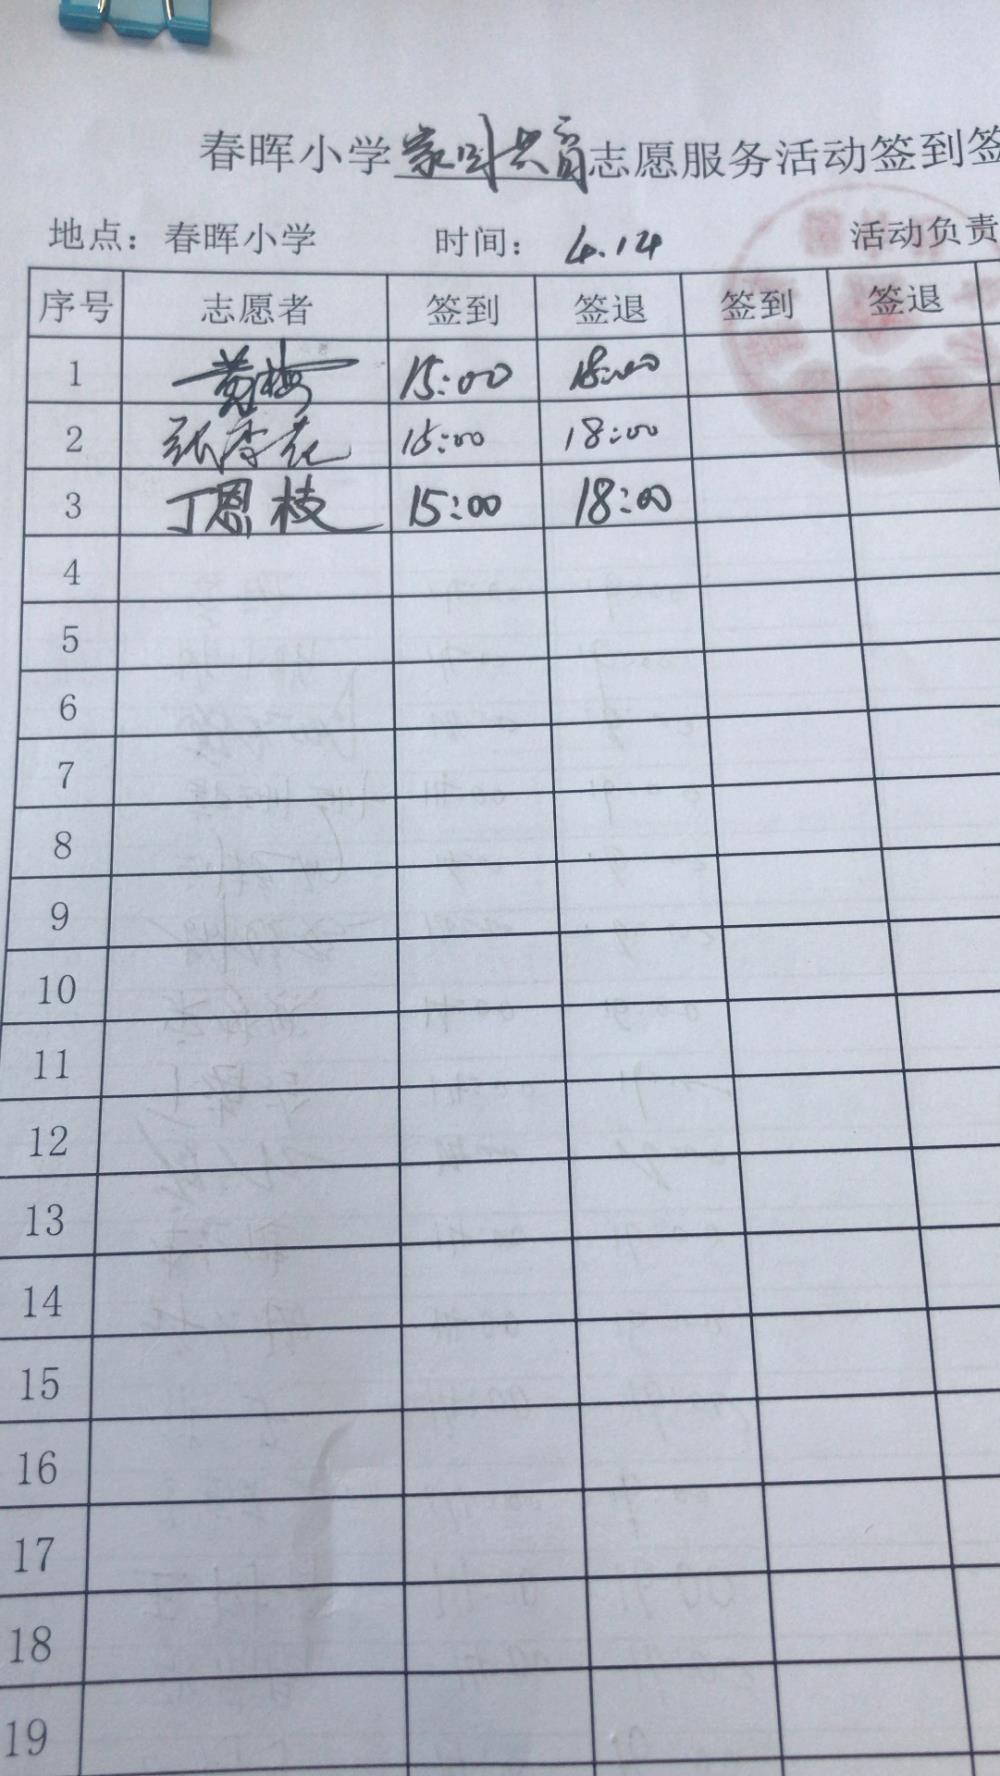 春晖小学家园共育志愿服务活动签到签
地点：春晖小学 时间：4.14 活动负责
序号 志愿者 签到 签退 签到 签退
1 黄梅 15:00 18:00
2 张李花 15:00 18:00
3 丁恩枝 15:00 18:00
4
5
6
7
8
9
10
11
12
13
14
15
16
17
18
19